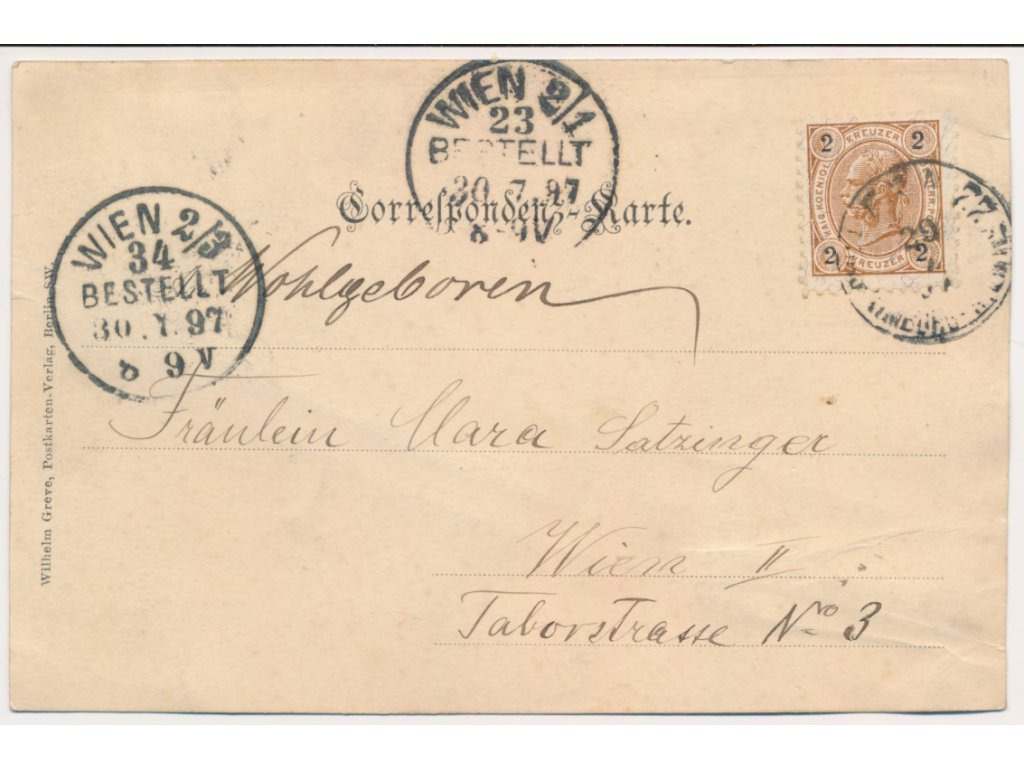 WIEN 2/1
23
BESTELLT
30.7.97
8-9V
Correspondenz-Karte.
WIEN 2/3
34
BESTELLT
30.7.97
8 9V
2 KREUZER 2
KAIS.KOENIGL.
2 KREUZER 2
29
Wohlgeboren
Fräulein Clara Satzinger
Wien II
Taborstrasse No 3
Wilhelm Greve, Postkarten-Verlag, Berlin SW.